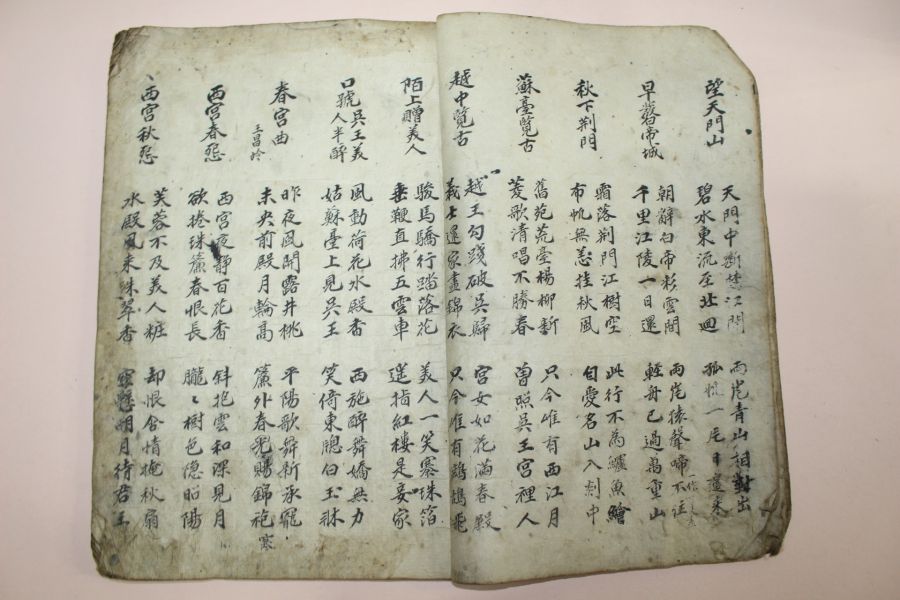 望天門山
天門中斷楚江開
碧水東流至北廻
兩岸青山相對出
孤帆一片日邊來
早發白帝城
朝辭白帝彩雲間
千里江陵一日還
兩岸猿聲啼不住
輕舟已過萬重山
秋下荆門
霜落荆門江樹空
布帆無恙挂秋風
此行不為鱸魚鱠
自愛名山入剡中
蘇臺覽古
舊苑荒臺楊柳新
菱歌清唱不勝春
只今惟有西江月
曾照吳王宮裡人
越中覽古
越王勾踐破吳歸
義士還家盡錦衣
宮女如花滿春殿
只今惟有鷓鴣飛
陌上贈美人
駿馬驕行踏落花
垂鞭直拂五雲車
美人一笑褰珠箔
遙指紅樓是妾家
口號吳王美人半醉
風動荷花水殿香
姑蘇臺上見吳王
西施醉舞嬌無力
笑倚東窓白玉牀
春宮曲
王昌岭
昨夜風開露井桃
未央前殿月輪高
平陽歌舞新承寵
簾外春光賜錦袍
寒
西宮春怨
西宮夜靜百花香
欲捲珠簾春恨長
斜抱雲和深見月
朧〻樹色隐昭陽
西宮秋怨
芙蓉不及美人粧
水殿風來珠翠香
却恨含情掩秋扇
空懸明月待君王